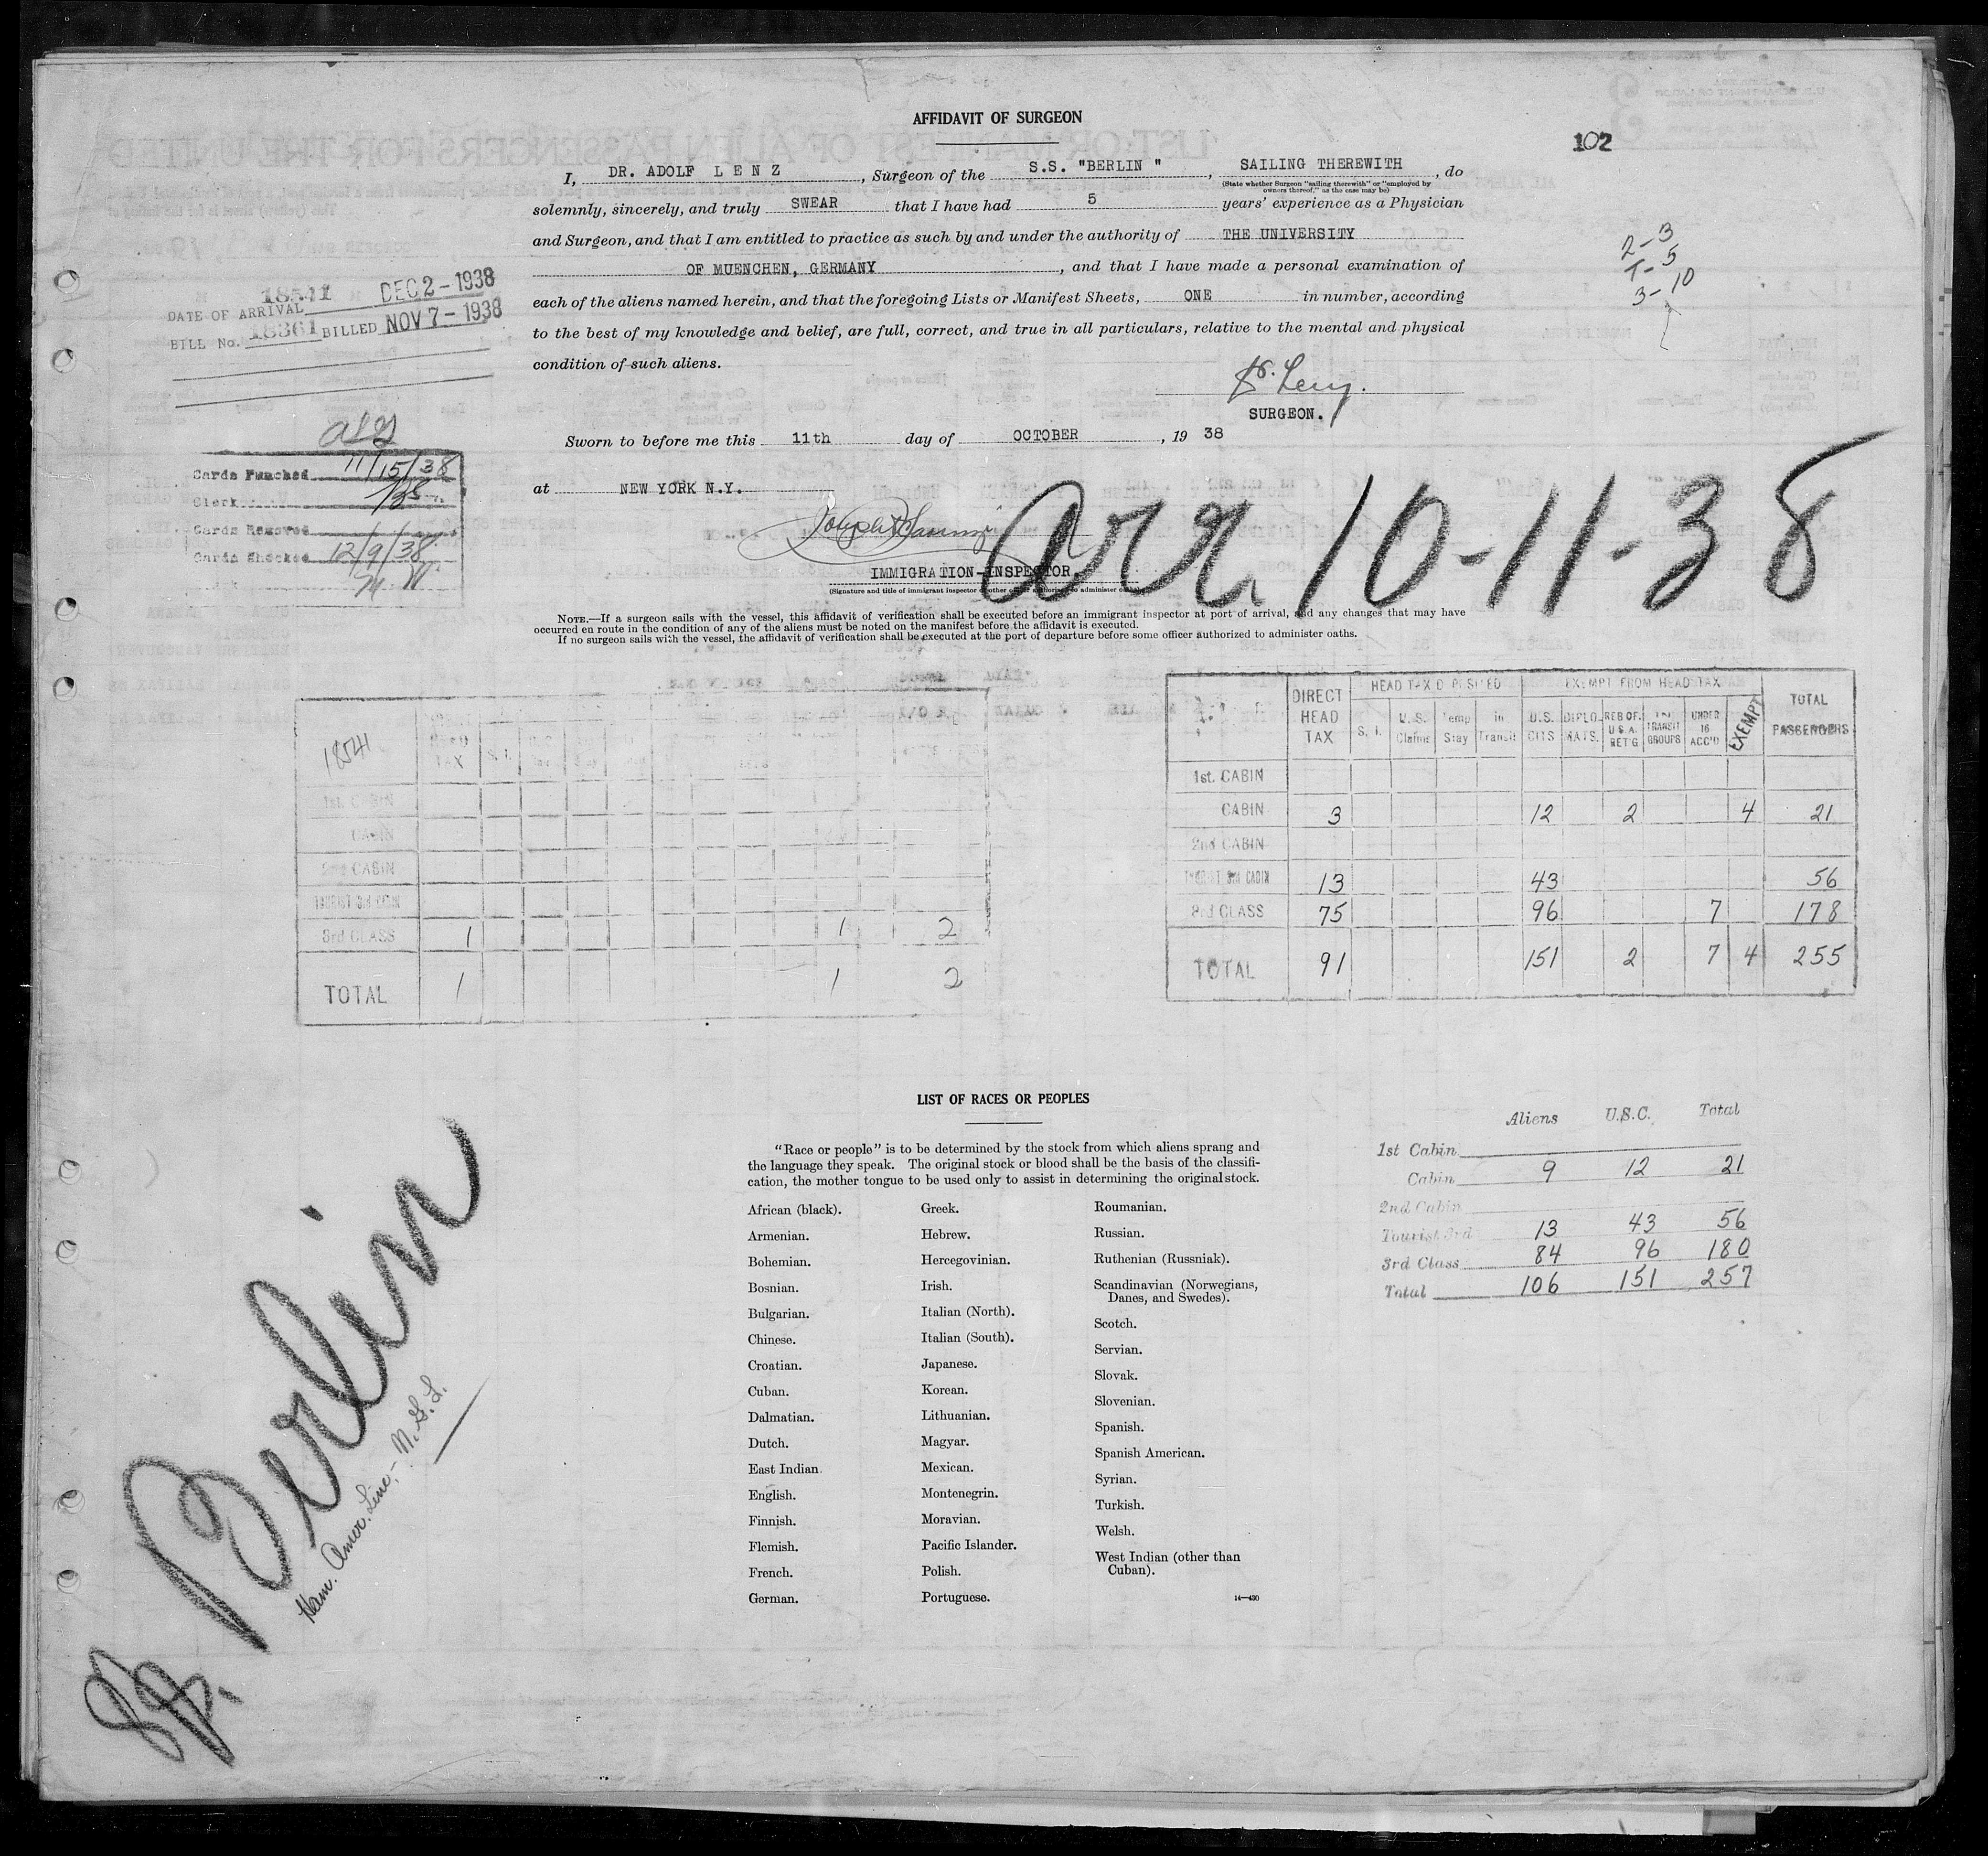 AFFIDAVIT OF SURGEON
102
I, DR. ADOLF L E N Z, Surgeon of the S.S. "BERLIN ", SAILING THEREWITH, do
(State whether Surgeon "sailing therewith" or "employed by owners thereof," as the case may be)
solemnly, sincerely, and truly SWEAR that I have had 5 years' experience as a Physician
and Surgeon, and that I am entitled to practice as such by and under the authority of THE UNIVERSITY
OF MUENCHEN, GERMANY, and that I have made a personal examination of
each of the aliens named herein, and that the foregoing Lists or Manifest Sheets, ONE in number, according
to the best of my knowledge and belief, are full, correct, and true in all particulars, relative to the mental and physical
condition of such aliens.
Dr. Lenz.
SURGEON.
Sworn to before me this 11th day of OCTOBER, 19 38
at NEW YORK N.Y.
IMMIGRATION-INSPECTOR
Arr. 10-11-38
NOTE.—If a surgeon sails with the vessel, this affidavit of verification shall be executed before an immigrant inspector at port of arrival, and any changes that may have
occurred en route in the condition of any of the aliens must be noted on the manifest before the affidavit is executed.
If no surgeon sails with the vessel, the affidavit of verification shall be executed at the port of departure before some officer authorized to administer oaths.
2-3
T-5
3-10
18541 DEC 2-1938
DATE OF ARRIVAL
BILL No. 18361 BILLED NOV 7-1938
Cards Punched 11/15/38
Clerk
Cards Removed
Cards Checked 12/9/38
M. W
18541
TAX S. I.
1st. CABIN
CABIN
2nd CABIN
TOURIST 3rd CABIN
3rd CLASS 1 1 2
TOTAL 1 1 2
DIRECT HEAD TAX
HEAD TAX DEPOSITED
EXEMPT FROM HEAD TAX
TOTAL PASSENGERS
S. I. U. S. Claims Temp Stay In Transit U.S. CITS DIPLO-MATS. RES OF. U.S.A. RET'G TRANSIT GROUPS UNDER 16 ACC'D EXEMPT
1st. CABIN
CABIN 3 12 2 4 21
2nd CABIN
TOURIST 3rd CABIN 13 43 56
3rd CLASS 75 96 7 178
TOTAL 91 151 2 7 4 255
LIST OF RACES OR PEOPLES
"Race or people" is to be determined by the stock from which aliens sprang and
the language they speak. The original stock or blood shall be the basis of the classifi-
cation, the mother tongue to be used only to assist in determining the original stock.
African (black).
Armenian.
Bohemian.
Bosnian.
Bulgarian.
Chinese.
Croatian.
Cuban.
Dalmatian.
Dutch.
East Indian
English.
Finnish.
Flemish.
French.
German.
Greek.
Hebrew.
Hercegovinian.
Irish.
Italian (North).
Italian (South).
Japanese.
Korean.
Lithuanian.
Magyar.
Mexican.
Montenegrin.
Moravian.
Pacific Islander.
Polish.
Portuguese.
Roumanian.
Russian.
Ruthenian (Russniak).
Scandinavian (Norwegians,
Danes, and Swedes).
Scotch.
Servian.
Slovak.
Slovenian.
Spanish.
Spanish American.
Syrian.
Turkish.
Welsh.
West Indian (other than
Cuban).
14—430
Aliens U.S.C. Total
1st Cabin
Cabin 9 12 21
2nd Cabin
Tourist 3rd 13 43 56
3rd Class 84 96 180
Total 106 151 257
SS. Berlin
Ham. Amer. Line, - N.G.L.